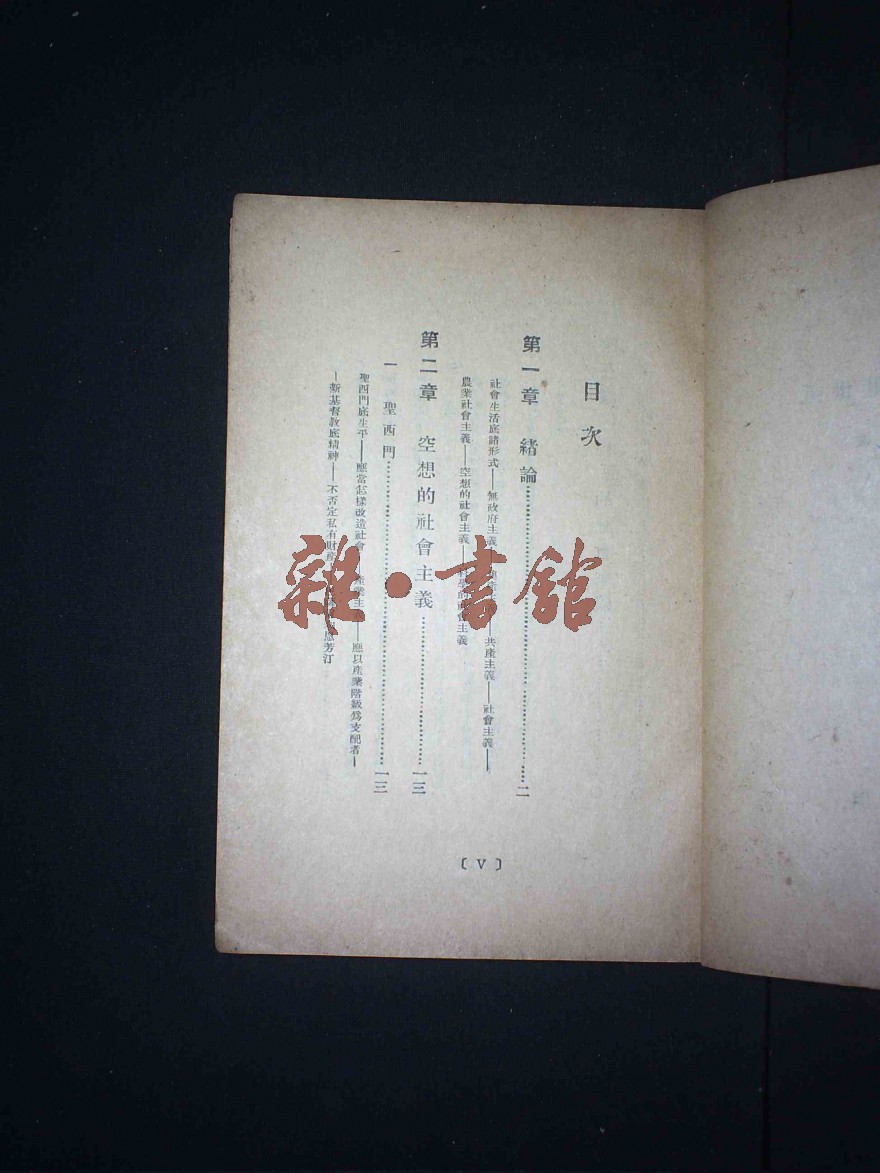 目次
第一章 緒論……二
社會生活底諸形式——無政府主義——共產主義——社會主義——
農業社會主義——空想的社會主義——科學的社會主義
第二章 空想的社會主義……一三
一 聖西門……一三
聖西門底生平——應當怎樣改造社會——產業主義——應以產業階級爲支配者—
—新基督教底精神——不否定私有財產 恩芳汀
〔V〕
雜·書館